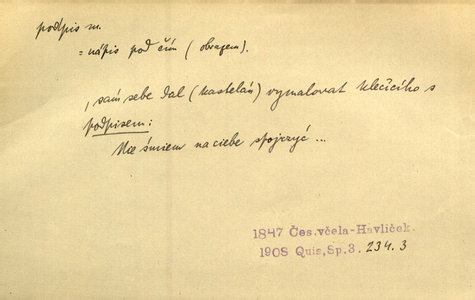 podpis m.
= nápis pod čím (obrazem).
„sám sebe dal (kastelán) vymalovat klečícího s
podpisem:
Nie śmiem na ciebie spojrzyć ...
1847 Čes.včela-Havlíček.
1908 Quis,Sp.3. 234.3